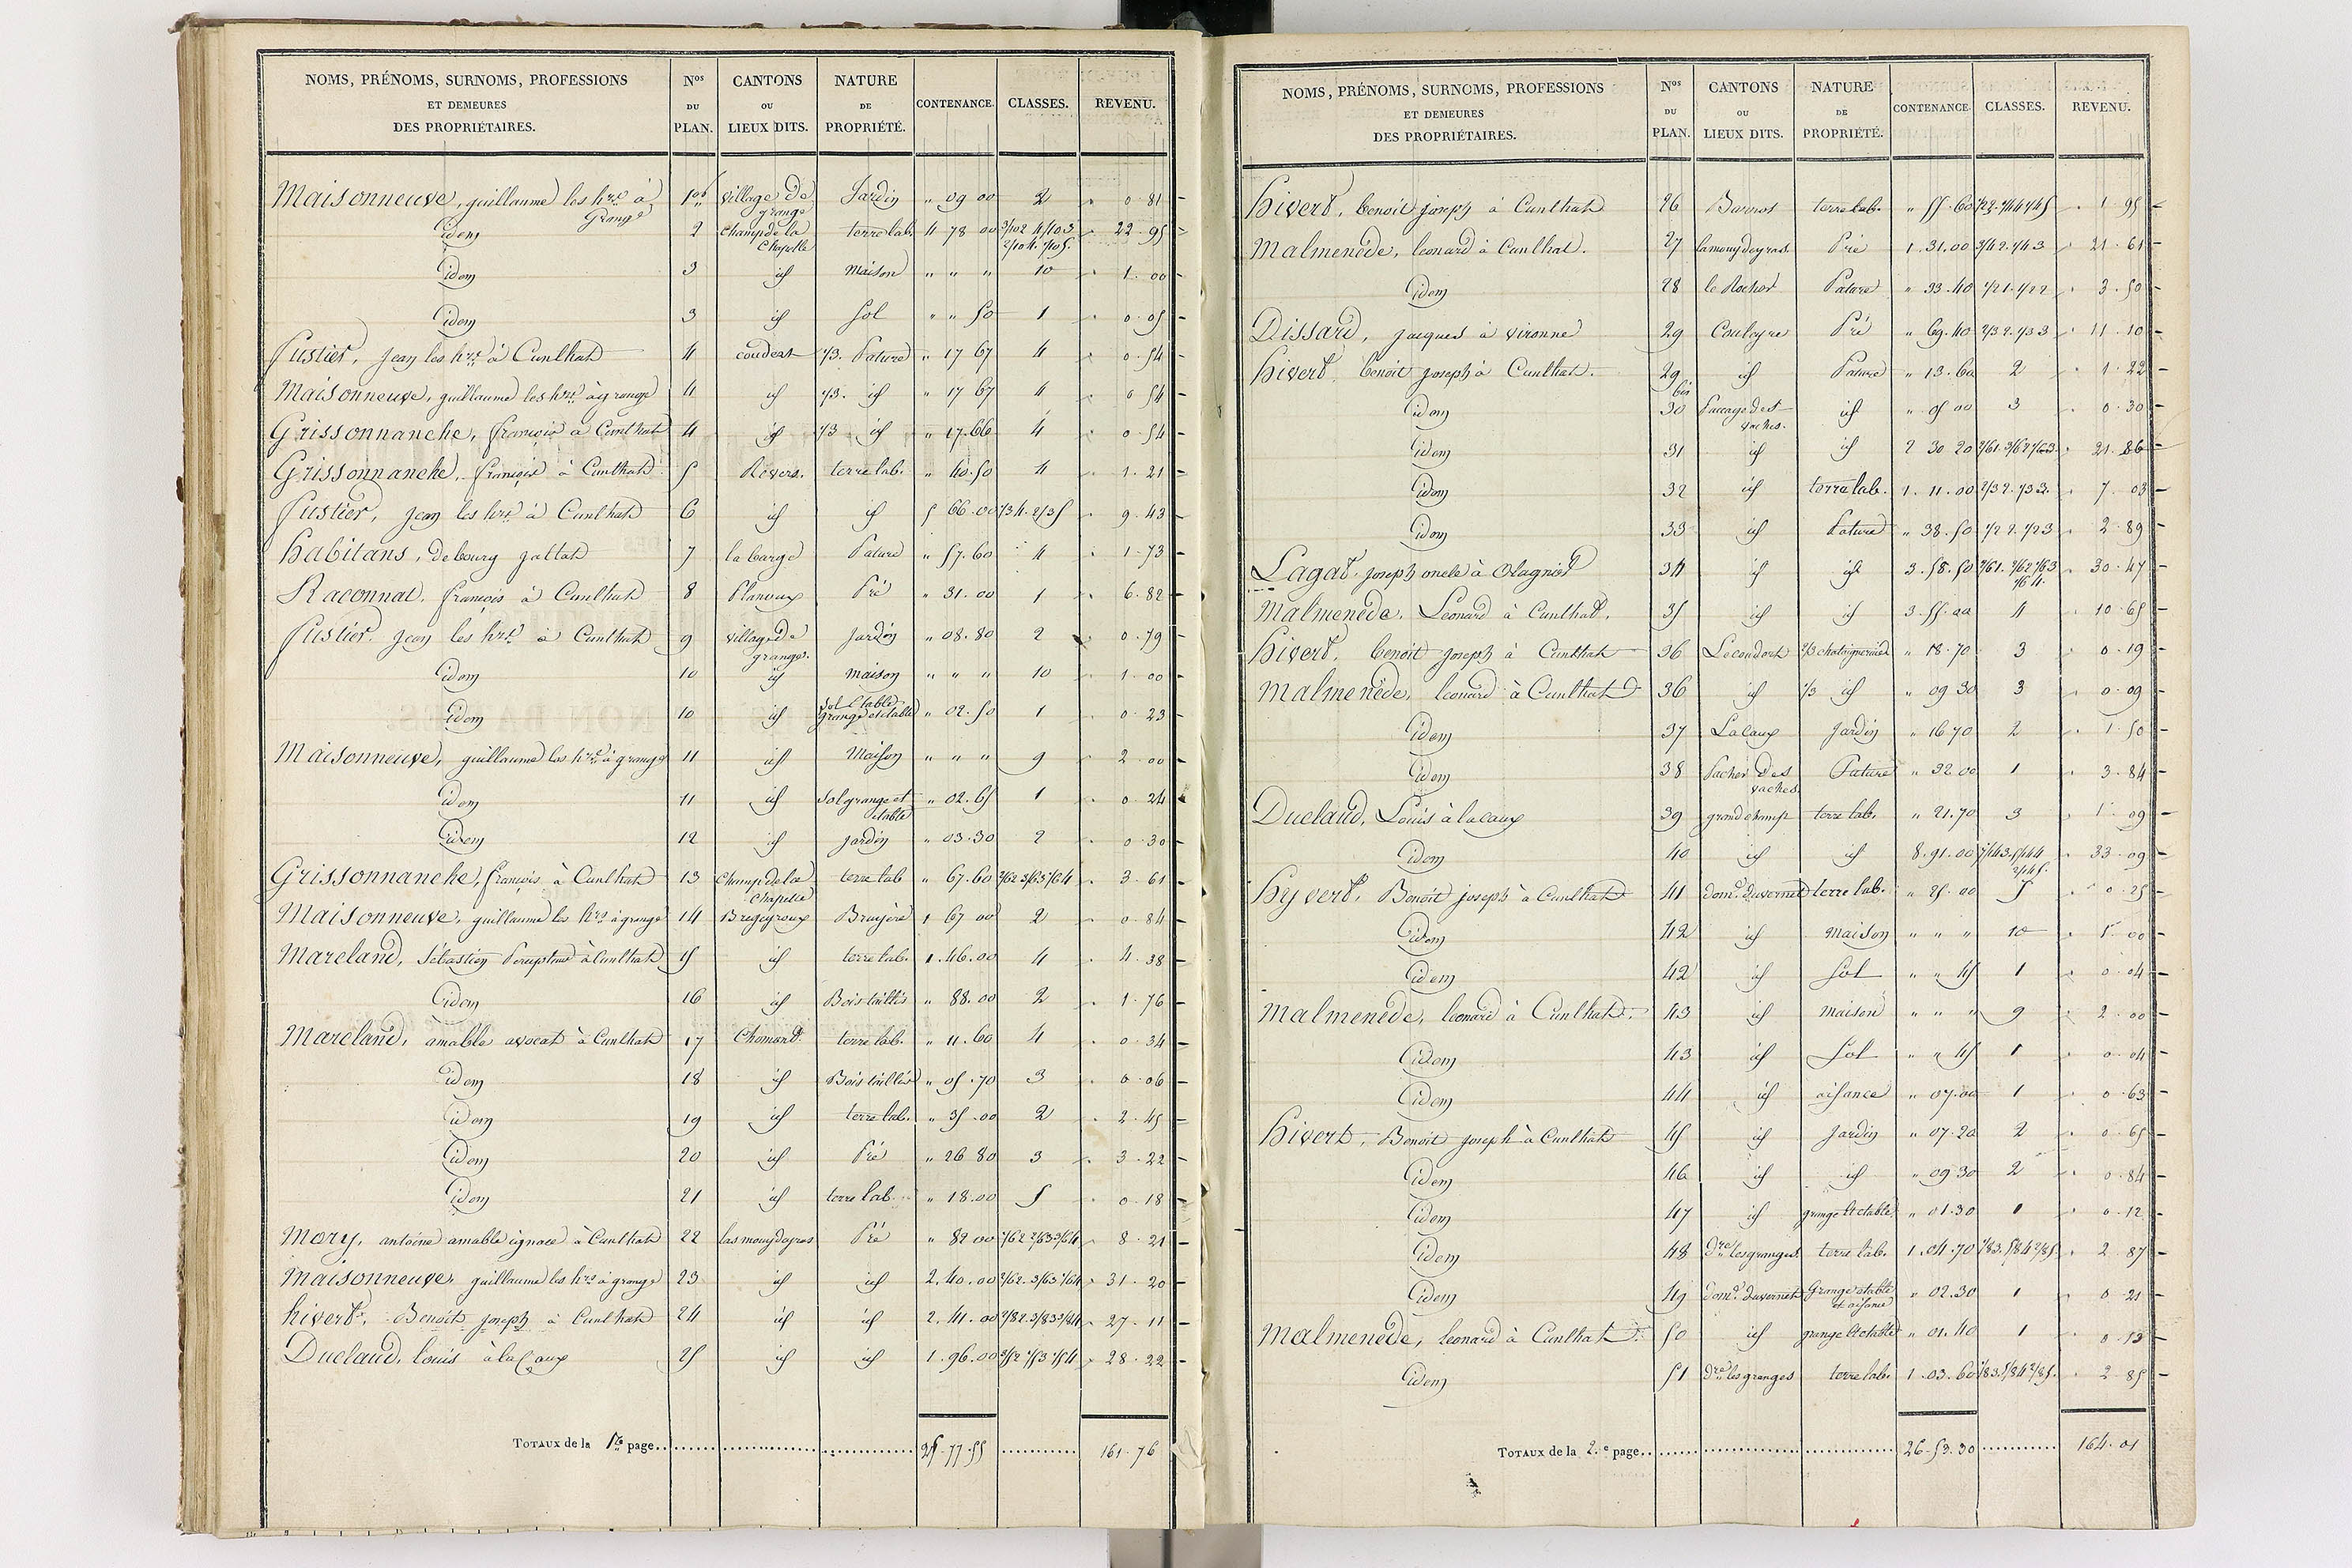 NOMS, PRÉNOMS, SURNOMS, PROFESSIONS ET DEMEURES DES PROPRIÉTAIRES. Nos DU PLAN. CANTONS OU LIEUX DITS. NATURE DE PROPRIÉTÉ. CONTENANCE. CLASSES. REVENU.
Maisonneuve, guillaume les hrs à Grange 1er village de grange Jardin " 09 00 2 0 81
idem 2 Champ de la Chapelle terre lab. 4 78 00 3/102 4/103 2/104 1/105 22 95
idem 3 id maison " " " 10 1 00
idem 3 id Sol " " 50 1 0 05
fustier, jean les hrs à Cunlhat 4 coudert 1/3 Pature " 17 67 4 0 54
Maisonneuve, guillaume les hrs à grange 4 id 1/3 id " 17 67 4 0 54
Grissonnanche, françois à Cunlhat 4 id 1/3 id " 17.66 4 0 54
Grissonnanche, françois à Cunlhat 5 Revers. terre lab. " 40.50 4 1.21
fustier, jean les hrs à Cunlhat 6 id id 5 66.00 1/34.2/35 9.43
habitans, de bourg jattat 7 la barge Pature " 57.60 4 1.73
Raconnat, françois à Cunlhat 8 Planoux Pré " 31.00 1 6.82
fustier, jean les hrs à Cunlhat 9 village de granges. Jardin " 08.80 2 0.79
idem 10 id maison " " " 10 1.00
idem 10 id Sol grange etable " 02.50 1 0.23
Maisonneuve, guillaume les hrs à grange 11 id Maison " " " 9 2 00
idem 11 id Sol grange et etable " 02.65 1 0.24
idem 12 id jardin " 03.30 2 0.30
Grissonnanche, françois à Cunlhat 13 champ de la chapelle terre lab " 67.60 2/62 3/63 1/64 3.61
Maisonneuve, guillaume les hrs à grange 14 Bregeyroux Bruyère 1 67 00 2 0 84
Mareland, Sébastien à Cunlhat 15 id terre lab. 1.46.00 4 4.38
idem 16 id Bois taillis " 88.00 2 1.76
Mareland, amable avocat à Cunlhat 17 Chomard terre lab. " 11.60 4 0.34
idem 18 id Bois taillis " 05.70 3 0.06
idem 19 id terre lab. " 35.00 2 2.45
idem 20 id Pré " 26 80 3 3.22
idem 21 id terre lab. " 18.00 5 0.18
Mory, antoine amable ignace à Cunlhat 22 las mouydegras Pré " 82 00 1/62 2/63 3/64 8.21
Maisonneuve, guillaume les hrs à grange 23 id id 2.40.00 2/62.3/63 1/64 31 20
hivert, Benoit joseph à Cunlhat 24 id id 2.41.00 2/82 3/83 3/84 27.11
Duclaud, louis à la Caux 25 id id 1.96.00 3/52 1/53 1/54 28.22
TOTAUX de la 1re page 25.77.55 161.76
NOMS, PRÉNOMS, SURNOMS, PROFESSIONS ET DEMEURES DES PROPRIÉTAIRES. Nos DU PLAN. CANTONS OU LIEUX DITS. NATURE DE PROPRIÉTÉ. CONTENANCE. CLASSES. REVENU.
hivert, benoit joseph à Cunlhat 26 Barrot terre lab. " 55.60 1 95
Malmenède, leonard à Cunlhat. 27 lamouydegras Pré 1.31.00 3/42.1/43 21.61
idem 28 le Rocher Pature " 33.40 1/21.1/22 3.50
Dissard, jacques à vironne 29 Couleyre Pré " 69.40 2/32.1/33 11.10
hivert benoit joseph à Cunlhat. 29 bis id Pature " 13.60 2 1.22
idem 30 Paccage des vaches. id " 05 00 3 0.30
idem 31 id id 2 30 20 2/61.3/62 1/63 21.86
idem 32 id terre lab. 1.11.00 2/32.1/33. 7.03
idem 33 id Pature " 38.50 1/22.1/23 2.89
Lagat joseph oncle à Olagniol 34 id id 3.58.50 2/61.2/62 1/63 1/64. 30.47
Malmenède, Leonard à Cunlhat. 35 id id 3.55.00 4 10.65
hivert, benoit joseph à Cunlhat 36 Lecoudert 2/3 chataigneraie " 18.70 3 0.19
Malmenède, leonard à Cunlhat 36 id 1/3 id " 09 30 3 0.09
idem 37 Lacaux Jardin " 16 70 2 1.50
idem 38 Pacher des vaches. Pature " 32 00 1 3.84
Duclaud, Louis à lacaux 39 grand champ terre lab. " 21.70 3 1.09
idem 40 id id 8.91.00 1/143.5/144 2/145. 33.09
hyvert, Benoit joseph à Cunlhat 41 dome duvernet terre lab. " 25.00 5 0.25
idem 42 id maison " " " 10 1.00
idem 42 id Sol " " 45 1 0.04
Malmenède, leonard à Cunlhat. 43 id maison " " " 9 2.00
idem 43 id Sol " " 45 1 0.04
idem 44 id aisance " 07.00 1 0.63
hivert, Benoit joseph à Cunlhat 45 id Jardin " 07.20 2 0.65
idem 46 id id " 09 30 2 0.84
idem 47 id grange et etable " 01.30 1 0.12
idem 48 dre les granges terre lab. 1.04.70 1/83.5/84 2/85. 2.87
idem 49 dome duvernet Grange etable et aisance " 02.30 1 0 21
Malmenède, leonard à Cunlhat 50 id grange et etable " 01.40 1 0.13
idem 51 dre les granges terre lab. 1.03.60 1/83.5/84 2/85. 2 85
TOTAUX de la 2.e page 26.53.30 164.01